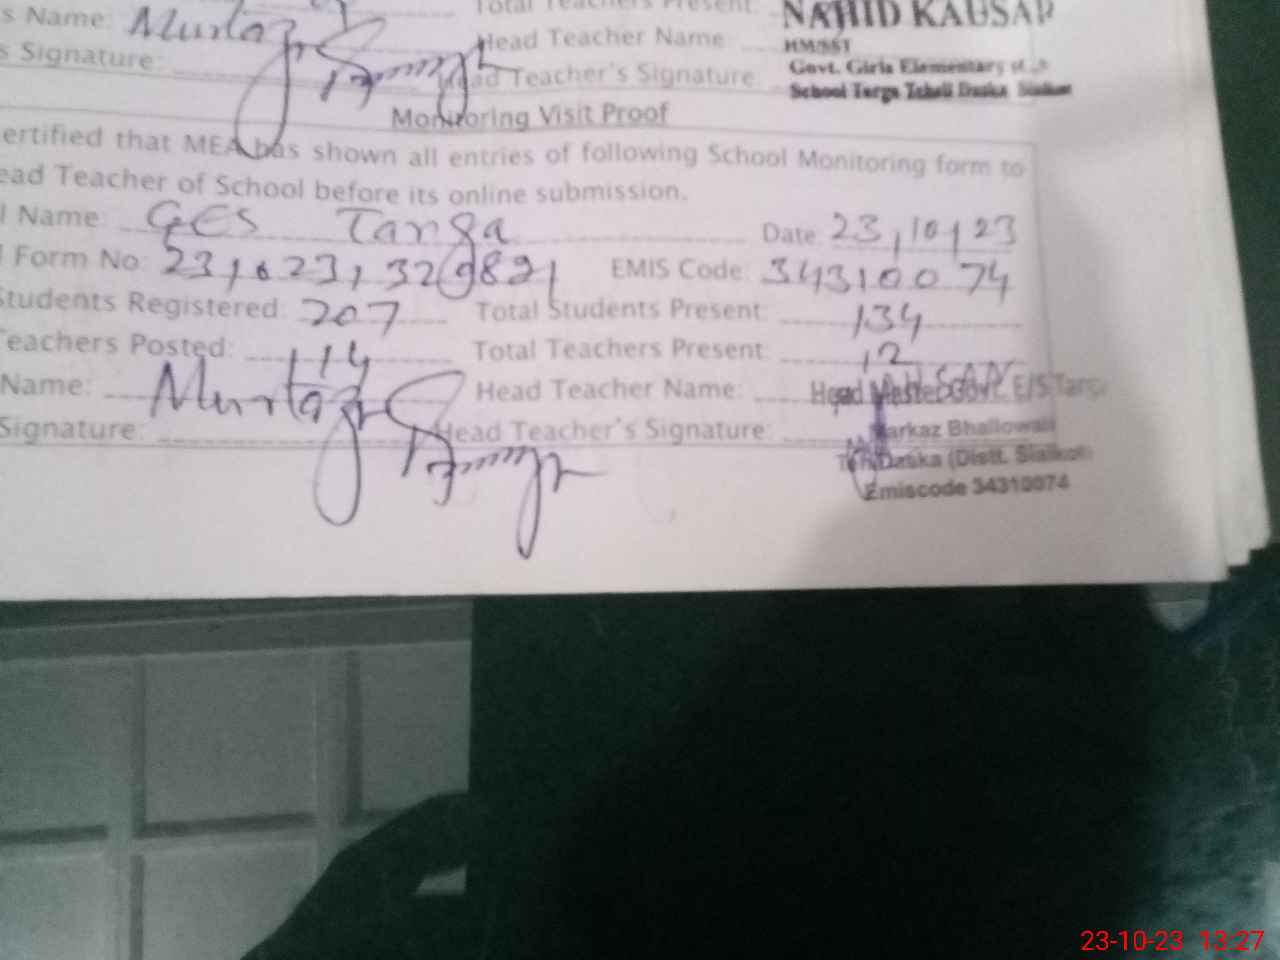 s Name: Murtaza Total Teachers Present: NAHID KAUSAR
Head Teacher Name: HM/SST
s Signature: Head Teacher's Signature: Govt. Girls Elementary
School Targa Tehsil Daska Sialkot
Monitoring Visit Proof
ertified that MEA has shown all entries of following School Monitoring form to
ead Teacher of School before its online submission.
l Name: GES Targa Date 23/10/23
l Form No: EMIS Code: 34310074
Students Registered: 207 Total Students Present: 134
Teachers Posted: 14 Total Teachers Present: 12
Name: Murtaza Head Teacher Name: Head Master Govt. E/S Targa
Signature: Head Teacher's Signature: Markaz Bhallowali
Teh Daska (Distt. Sialkot)
Emiscode 34310074
23-10-23 13:27